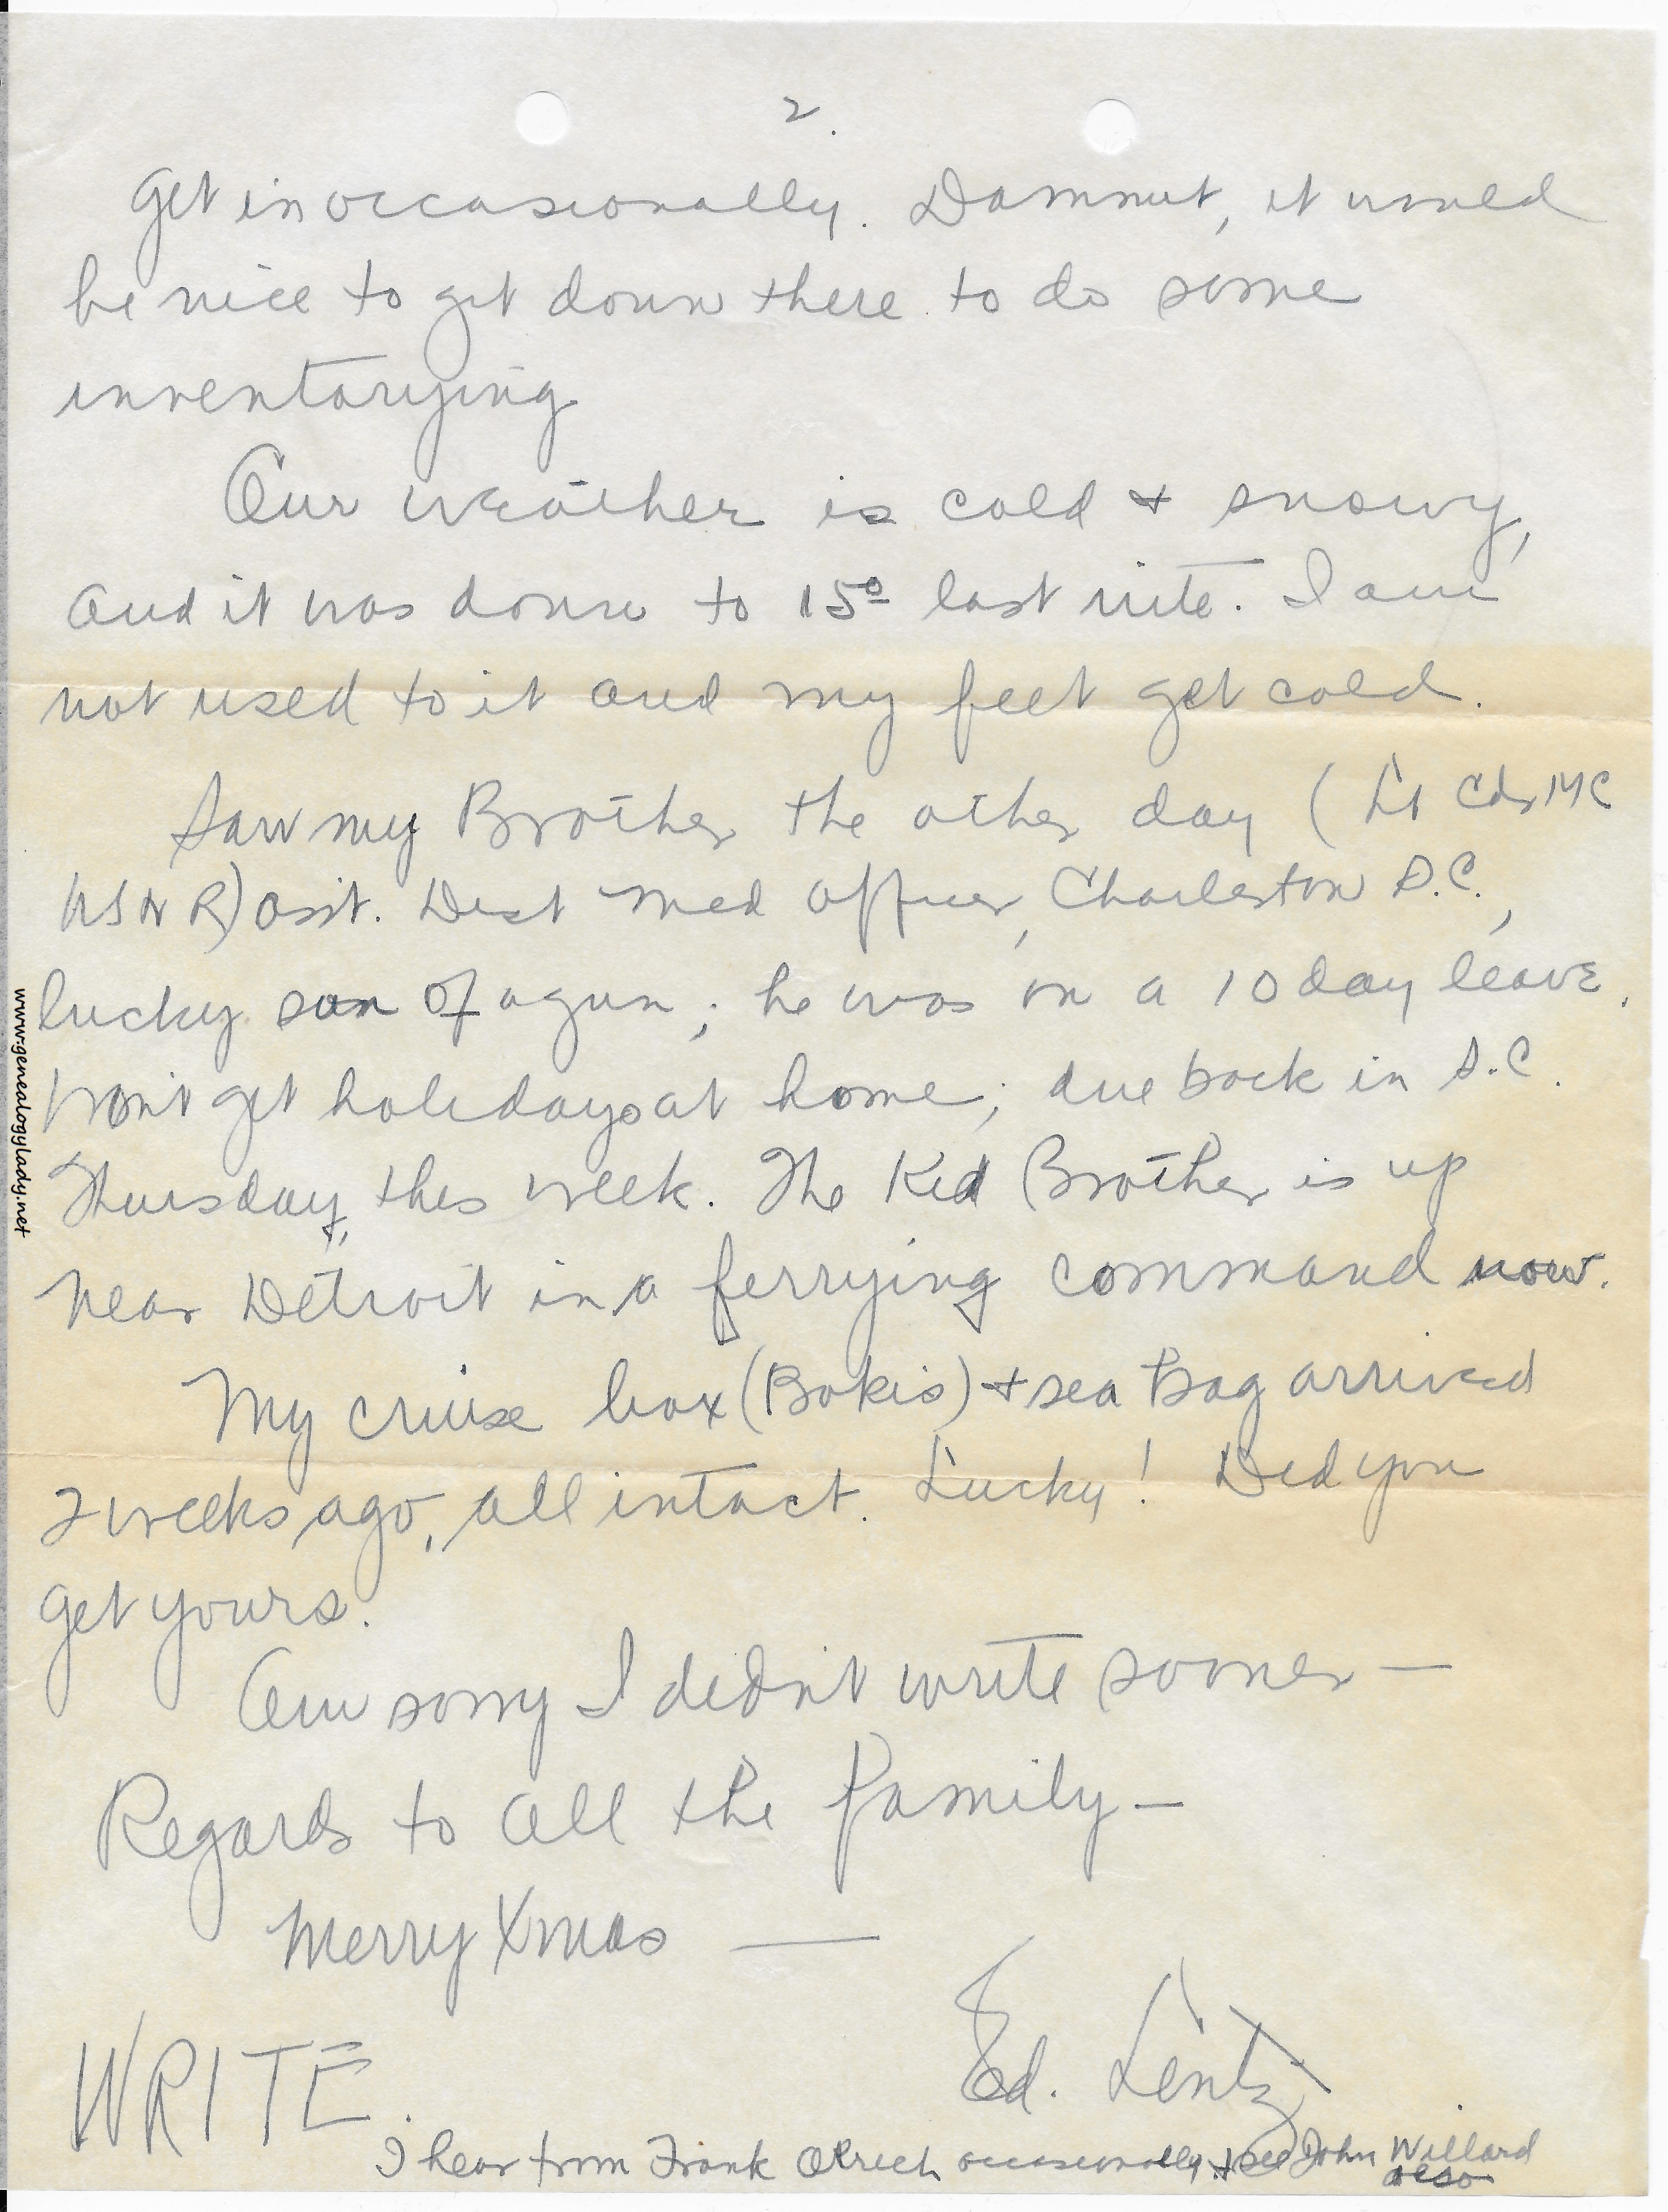 2.
get in occasionally. Damnut, it would
be nice to get down there to do some
inventorying
Our weather is cold + snowy,
and it was down to 15º last nite. I am
not used to it and my feet get cold.
Saw my Brother the other day (Lt Cdr MC
USNR) asst. Dist Med Officer, Charleston S.C.,
lucky son of a gun; he was on a 10 day leave.
Won't get holidays at home; due back in S.C.
Thursday, this week. The Kid Brother is up
near Detroit in a ferrying command now.
My cruise box (Bokis) + sea bag arrived
2 weeks ago, all intact. Lucky! Did you
get yours.
Am sorry I didn't write sooner —
Regards to all the family —
Merry Xmas —
Ed. Lentz
WRITE.
I hear from Frank occasionally + see John Willard
also
www.genealogylady.net